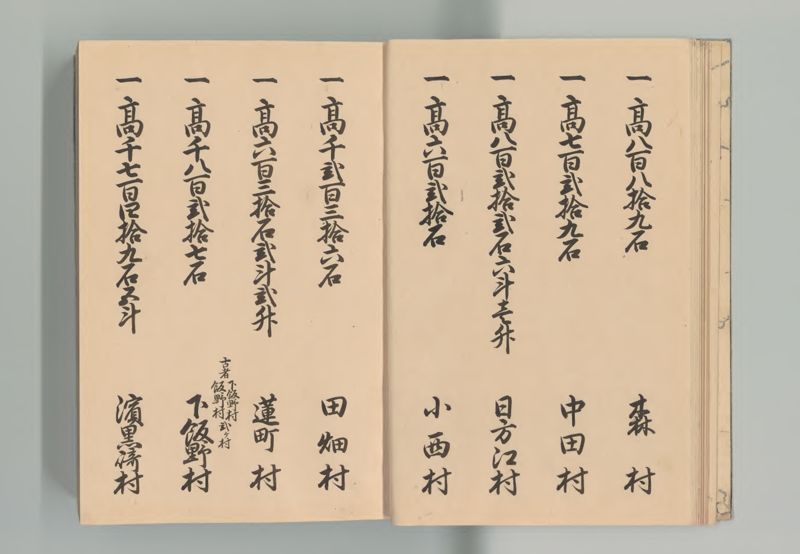 一 高八百八拾九石 森村
一 高七百弐拾九石 中田村
一 高八百弐拾弐石六斗壱升 日方江村
一 高六百弐拾石 小西村
一 高千弐百三拾六石 田畑村
一 高六百三拾石弐斗弐升 蓮町村
古者下飯野村
飯野村弐ケ村
一 高千八百弐拾七石 下飯野村
一 高千七百四拾九石五斗 濱黒崎村